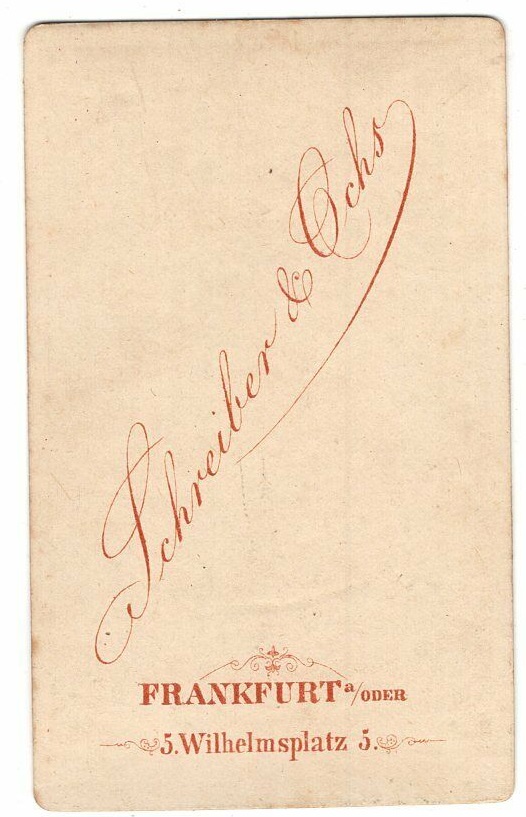 Schreiber & Ochs
FRANKFURT a/ODER
5. Wilhelmsplatz 5.